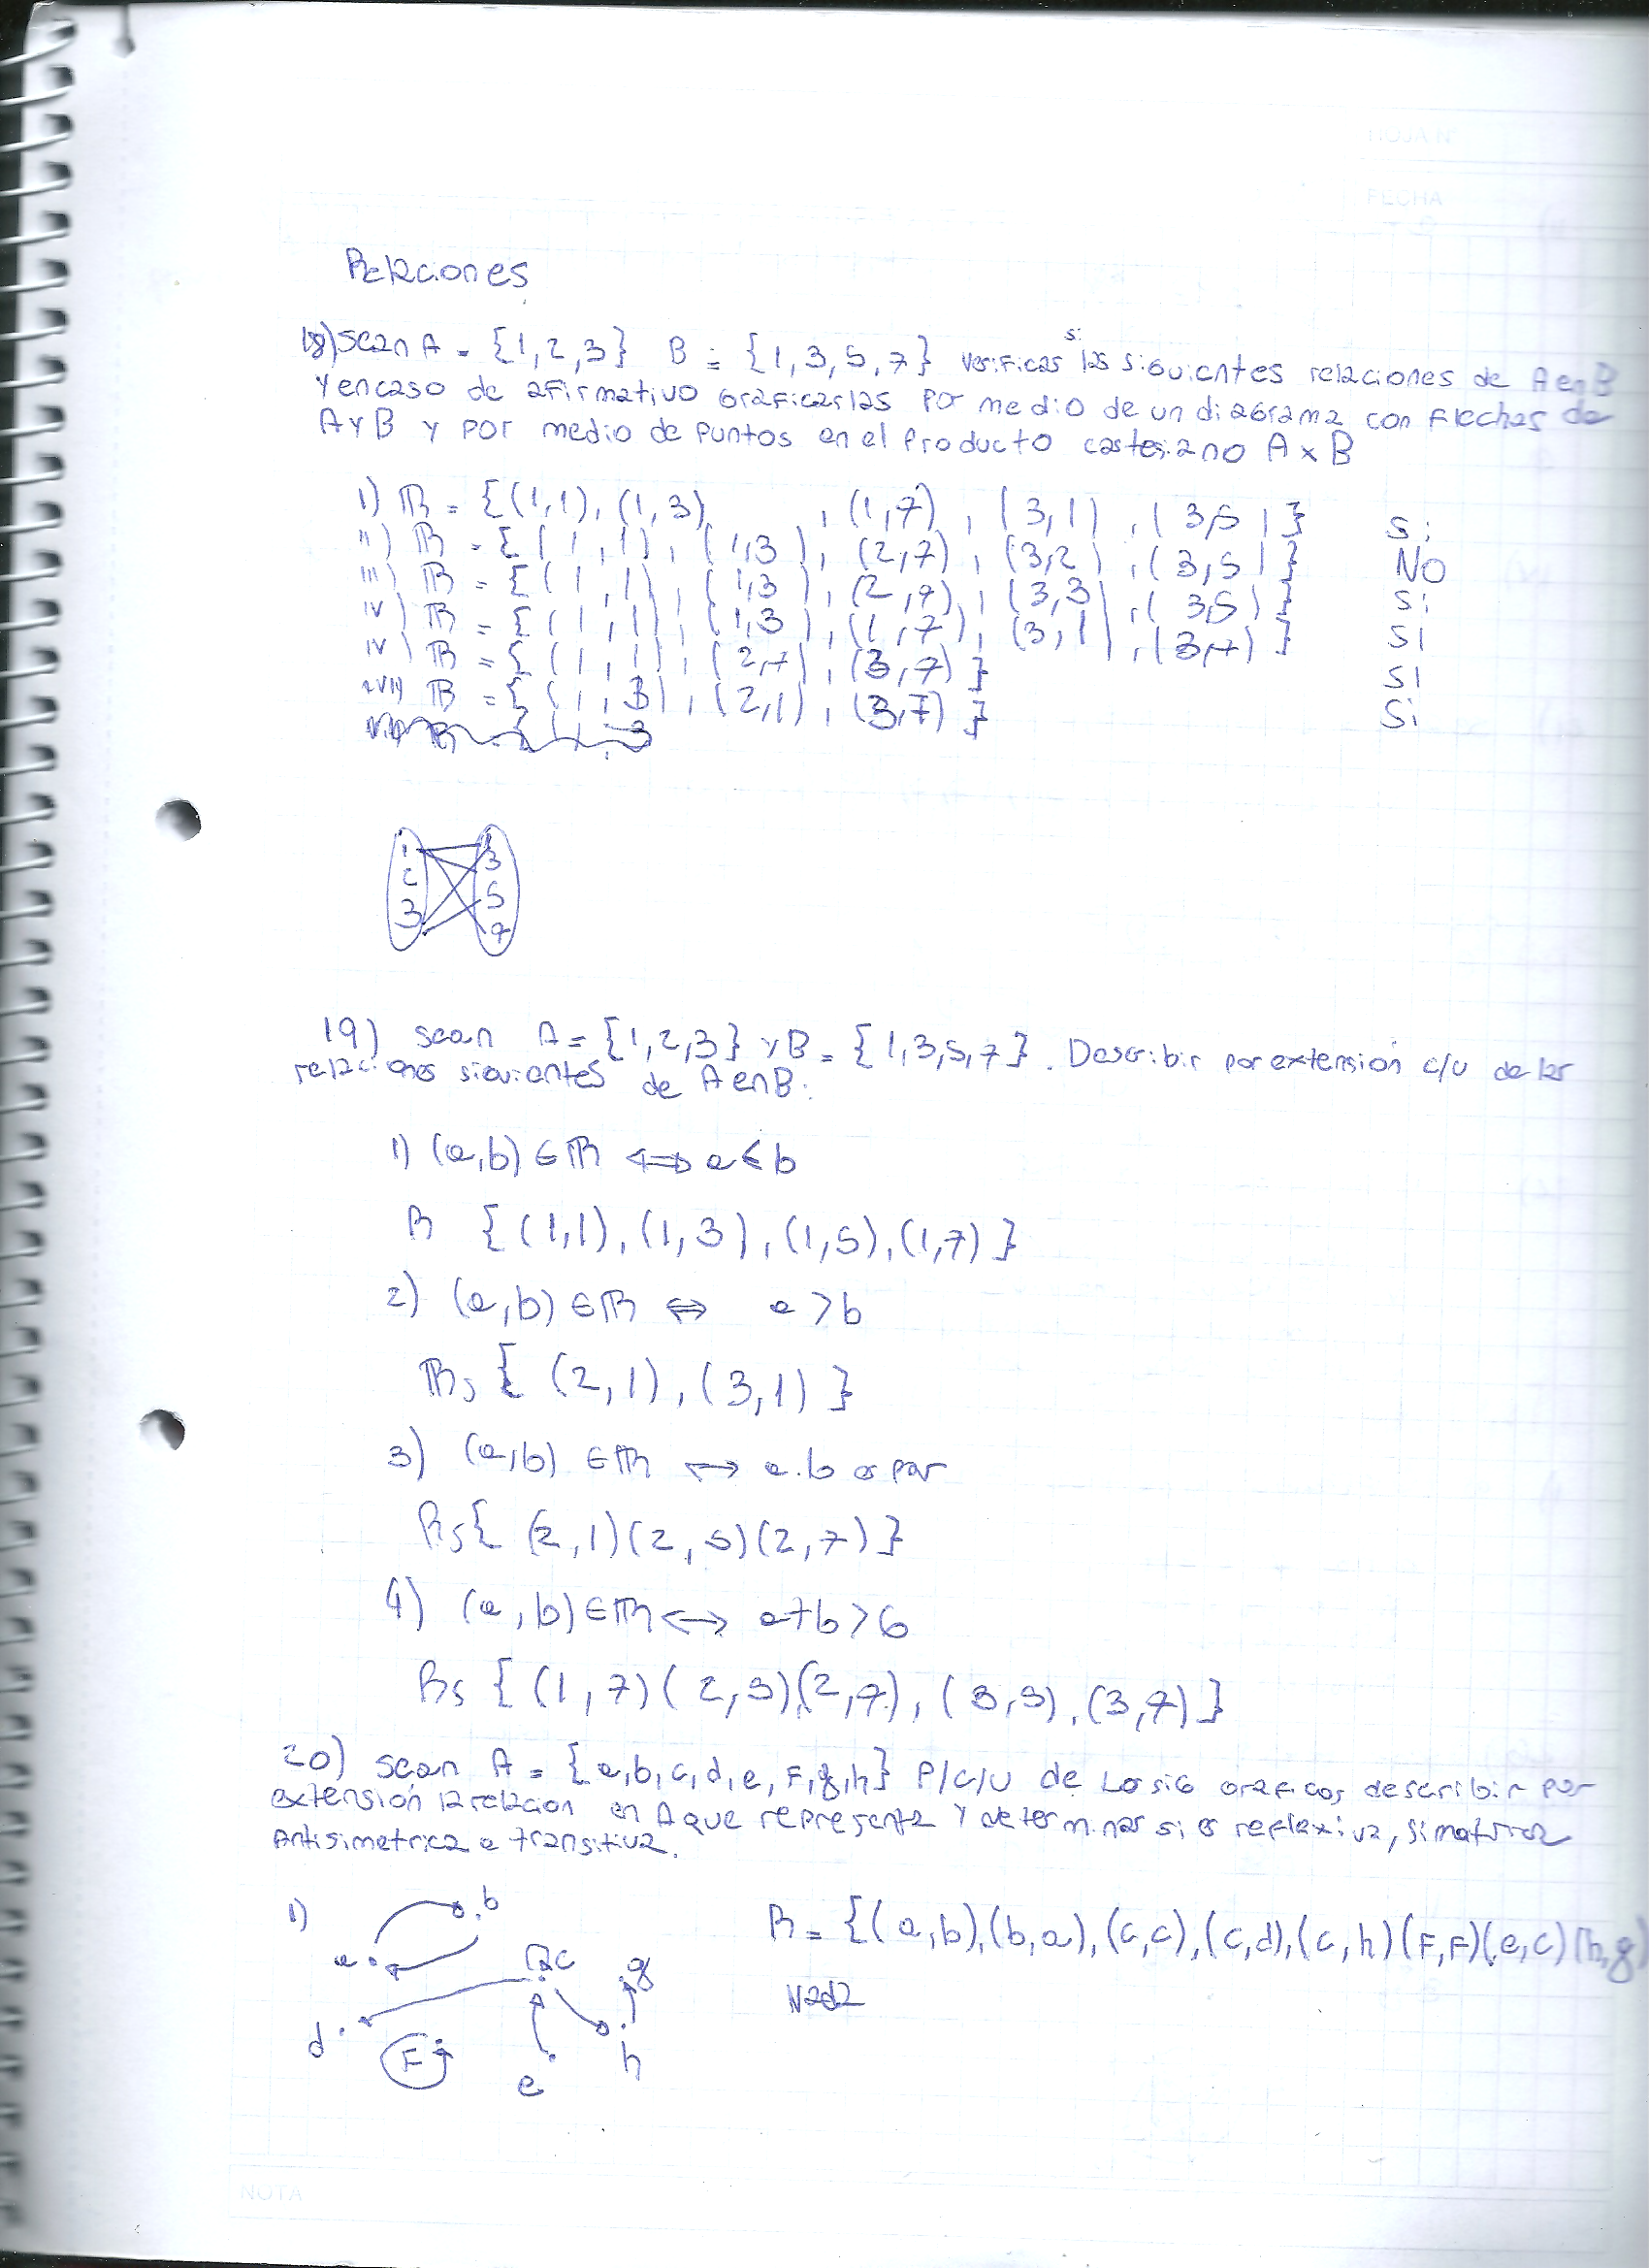 HOJA N°
FECHA
Relaciones
18) Sean A = {1,2,3} B = {1,3,5,7} verificar si las siguientes relaciones de A en B
Y en caso de afirmativo Graficarlas Por medio de un diagrama con Flechas de
A y B y por medio de puntos en el Producto cartesiano A x B
i) R = {(1,1), (1,3), (1,7), (3,1), (3,5)} Si
ii) R = {(1,1), (1,3), (2,7), (3,2), (3,5)} NO
iii) R = {(1,1), (1,3), (2,7), (3,3), (3,5)} Si
iv) R = {(1,1), (1,3), (1,7), (3,1), (3,7)} SI
iv) R = {(1,1), (2,7), (3,7)} SI
R = {(1,3), (2,1), (3,7)} Si
1 1
2 3
3 5
7
19) Sean A = {1,2,3} y B = {1,3,5,7}. Describir por extensión c/u de las
relaciones siguientes de A en B:
1) (a,b) ∈ R ⟺ a ≤ b
R {(1,1), (1,3), (1,5), (1,7)}
2) (a,b) ∈ R ⟺ a > b
Rs {(2,1), (3,1)}
3) (a,b) ∈ R ⟷ a.b es par
Rs {(2,1)(2,5)(2,7)}
4) (a,b) ∈ R ⟷ a+b>6
Rs {(1,7)(2,5)(2,7), (3,5), (3,7)}
20) sean A = {a,b,c,d,e,F,g,h} P/C/U de Lo sig graficos describir por
extensión la relacion en A que representa Y determinar si es reflexiva, simetrica
Antisimetrica e transitiva.
1) b
a c g
d F e h
R = {(a,b),(b,a),(c,c),(c,d),(c,h)(F,F)(e,c)(h,g)
Nada
NOTA